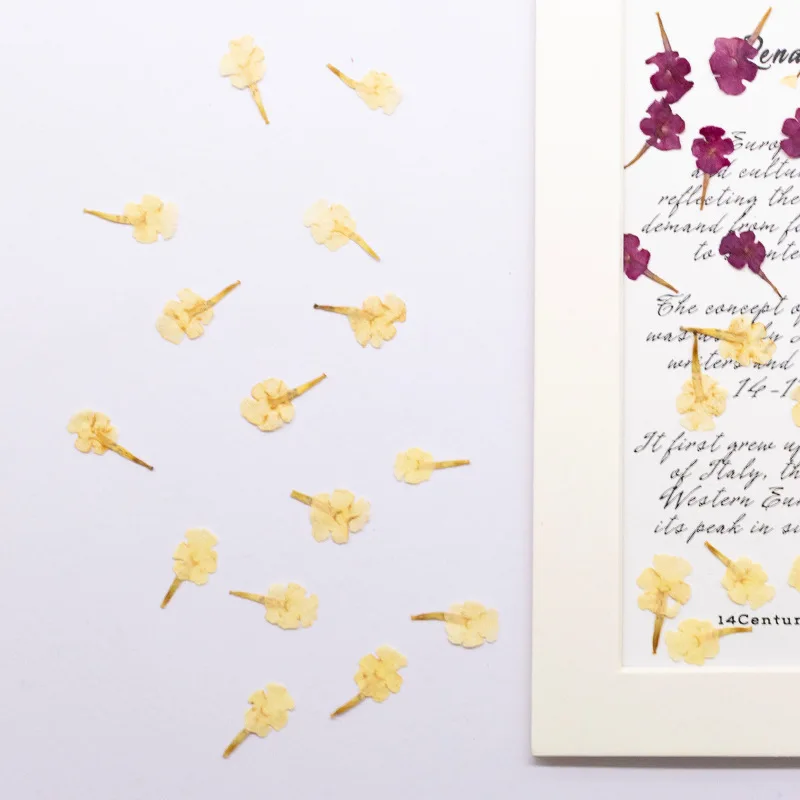 Rena
Europ
and cultu
reflecting the
demand from fo
to
The concept o
was
writers and
14-1
It first grew up
of Italy, th
Western Eur
its peak in si
14Centur